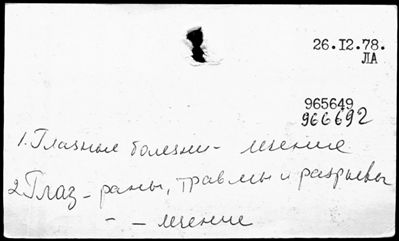 26.12.78.
ЛА
965649
966692
1. Глазные болезни - лечение
2. Глаз - раны, травмы и разрывы
- - лечение